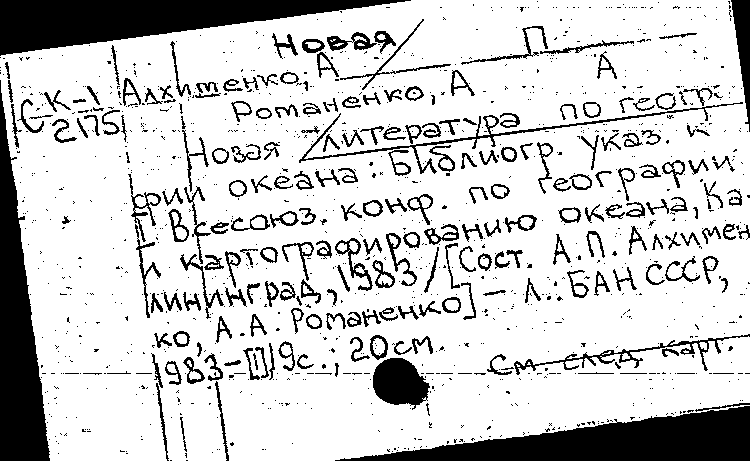 Новая
Алхименко, А П
СК-1
2175
Романенко, А А
Новая литература по геогр
фии океана: Библиогр. указ. к
I Всесоюз. конф. по географии
и картографированию океана, Ка-
лининград, 1983 / [Сост. А.П. Алхимен
ко, А.А. Романенко]. - Л.: БАН СССР,
1983-[1]19с.; 20см.
См. след. карт.